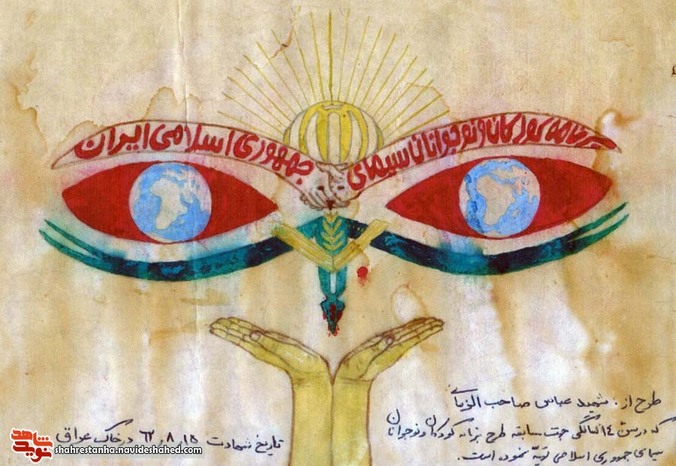 برنامه کودکان و نوجوانان سیمای جمهوری اسلامی ایران
طرح از: شهید عباس صاحب الزمانی
که در سن ۱۴ سالگی جهت مسابقه طرح برنامه کودکان و نوجوانان
سیمای جمهوری اسلامی تهیه نموده است.
تاریخ شهادت ۱۵ . ۸ . ۶۲ در خاک عراق
نوید شاهد
shahrestanha.navideshahed.com